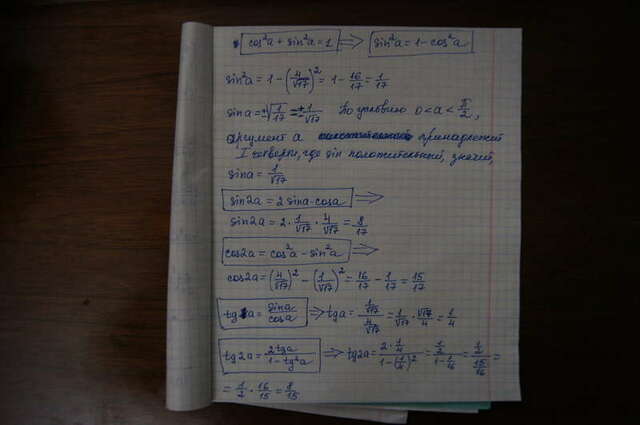 cos²a + sin²a = 1 ⇒ sin²a = 1 - cos²a
sin²a = 1 - (4/√17)² = 1 - 16/17 = 1/17
sin a = ±√1/17 = ±1/√17 По условию 0 < a < π/2,
аргумент a принадлежит
I четверти, где sin положительный, значит,
sin a = 1/√17
sin2a = 2 sina · cosa ⇒
sin2a = 2 · 1/√17 · 4/√17 = 8/17
cos2a = cos²a - sin²a ⇒
cos2a = (4/√17)² - (1/√17)² = 16/17 - 1/17 = 15/17
tga = sina/cosa ⇒ tga = (1/√17)/(4/√17) = 1/√17 · √17/4 = 1/4
tg2a = 2tga/(1 - tg²a) ⇒ tg2a = (2 · 1/4)/(1 - (1/4)²) = (1/2)/(1 - 1/16) = (1/2)/(15/16) =
= 1/2 · 16/15 = 8/15